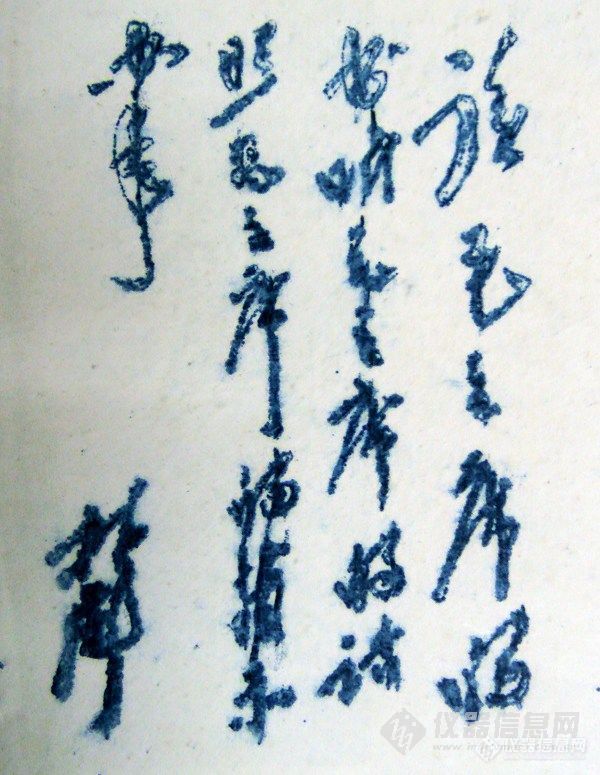 读毛主席的
书听毛主席的话
照毛主席的指示
办事
林彪
仪器信息网
www.instrument.com.cn